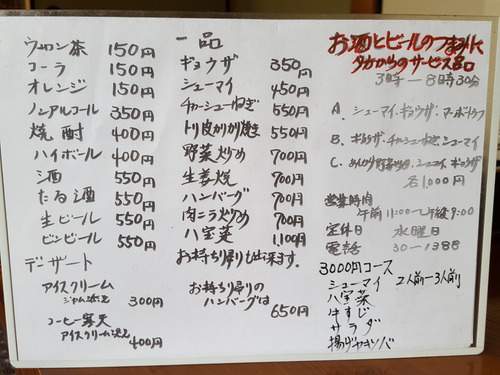 ウーロン茶 150円
コーラ 150円
オレンジ 150円
ノンアルコール 350円
焼酎 400円
ハイボール 400円
酒 550円
たる酒 550円
生ビール 550円
ビンビール 550円
デザート
アイスクリーム
300円
コーヒー寒天
400円
一品
ギョウザ 350円
シューマイ 450円
チャーシューねぎ 550円
トリ皮カリカリ焼き 550円
野菜炒め 700円
生姜焼 700円
ハンバーグ 700円
肉ニラ炒め 700円
八宝菜 1,100円
お持ち帰りも出来ます.
お持ち帰りの
ハンバーグは
650円
お酒とビールのつまみに
夕方からのサービス品
3時ー8時30分
A. シューマイ.ギョウザ.マーボードウフ
B. ギョウザ.チャーシューねぎ.シューマイ
C. シューマイ.ギョウザ
各1,000円
営業時間
午前11:00〜午後9:00
定休日 水曜日
電話 30-1388
3000円コース
シューマイ 2人前ー3人前
八宝菜
牛すじ
サラダ
揚げヤキソバ